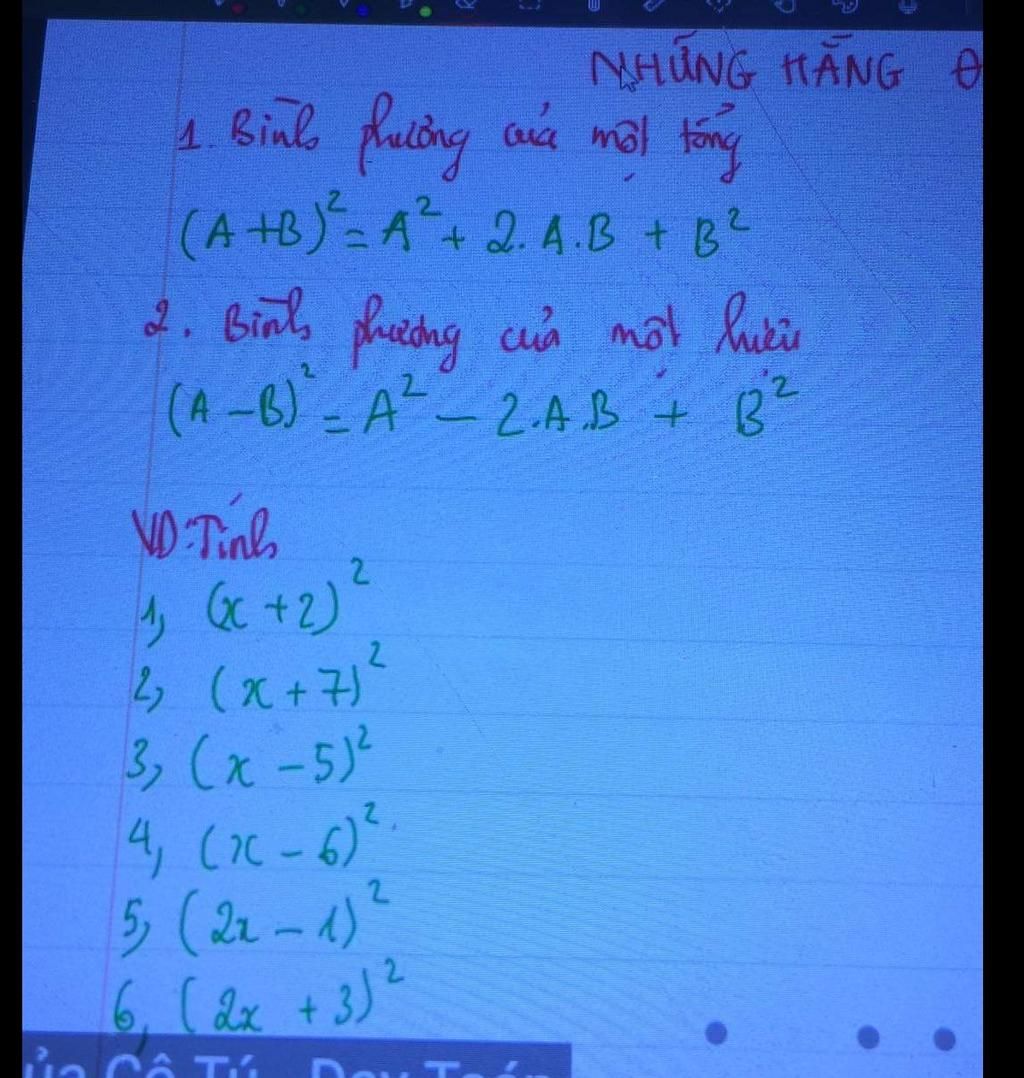 NHỮNG HẰNG Đ
1. Bình phương của một tổng
(A+B)² = A² + 2.A.B + B²
2. Bình phương của một hiệu
(A - B)² = A² - 2.A.B + B²
VD: Tính
1, (x+2)²
2, (x+7)²
3, (x-5)²
4, (x-6)²
5, (2x-1)²
6, (2x+3)²
ủa Cô Tú - Dạy Toán